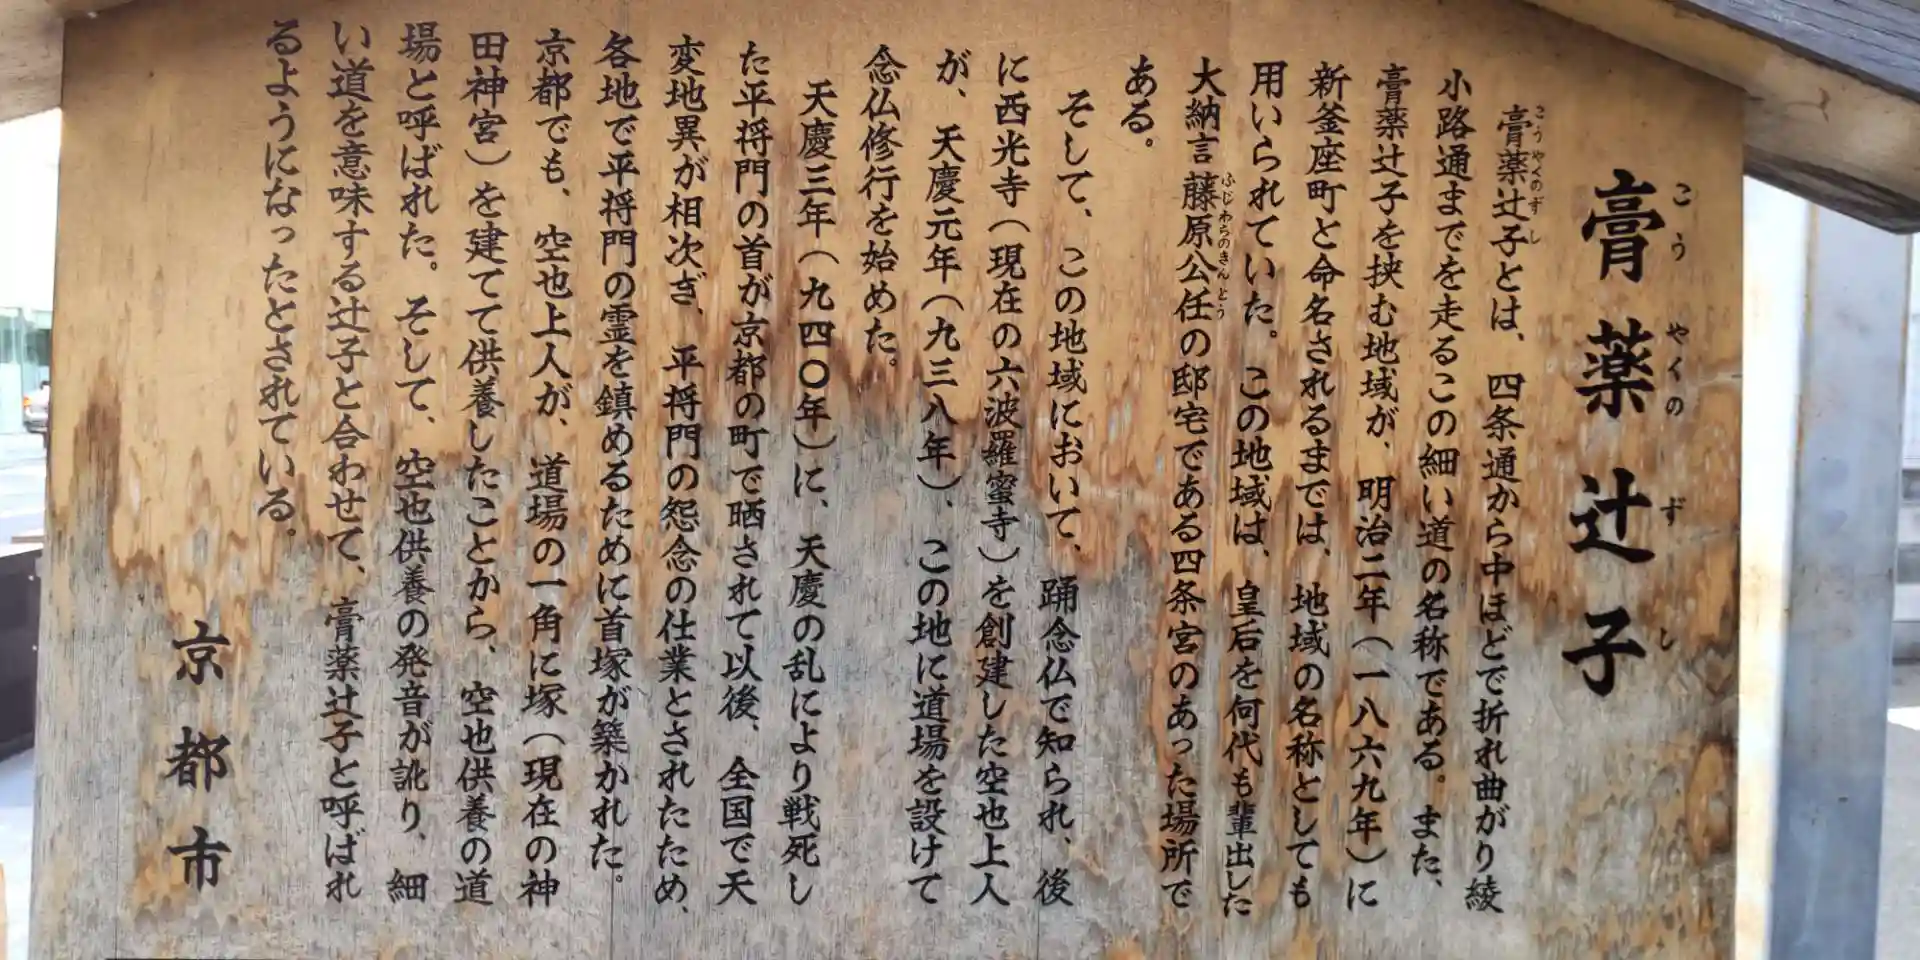 膏薬辻子
こうやくのずし
膏薬辻子とは、四条通から中ほどで折れ曲がり綾
こうやくのずし
小路通までを走るこの細い道の名称である。また、
膏薬辻子を挟む地域が、明治二年（一八六九年）に
新釜座町と命名されるまでは、地域の名称としても
用いられていた。この地域は、皇后を何代も輩出した
大納言藤原公任の邸宅である四条宮のあった場所で
ふじわらのきんとう
ある。
そして、この地域において、踊念仏で知られ、後
に西光寺（現在の六波羅蜜寺）を創建した空也上人
が、天慶元年（九三八年）、この地に道場を設けて
念仏修行を始めた。
天慶三年（九四〇年）に、天慶の乱により戦死し
た平将門の首が京都の町で晒されて以後、全国で天
変地異が相次ぎ、平将門の怨念の仕業とされたため、
各地で平将門の霊を鎮めるために首塚が築かれた。
京都でも、空也上人が、道場の一角に塚（現在の神
田神宮）を建てて供養したことから、空也供養の道
場と呼ばれた。そして、空也供養の発音が訛り、細
い道を意味する辻子と合わせて、膏薬辻子と呼ばれ
るようになったとされている。
京都市